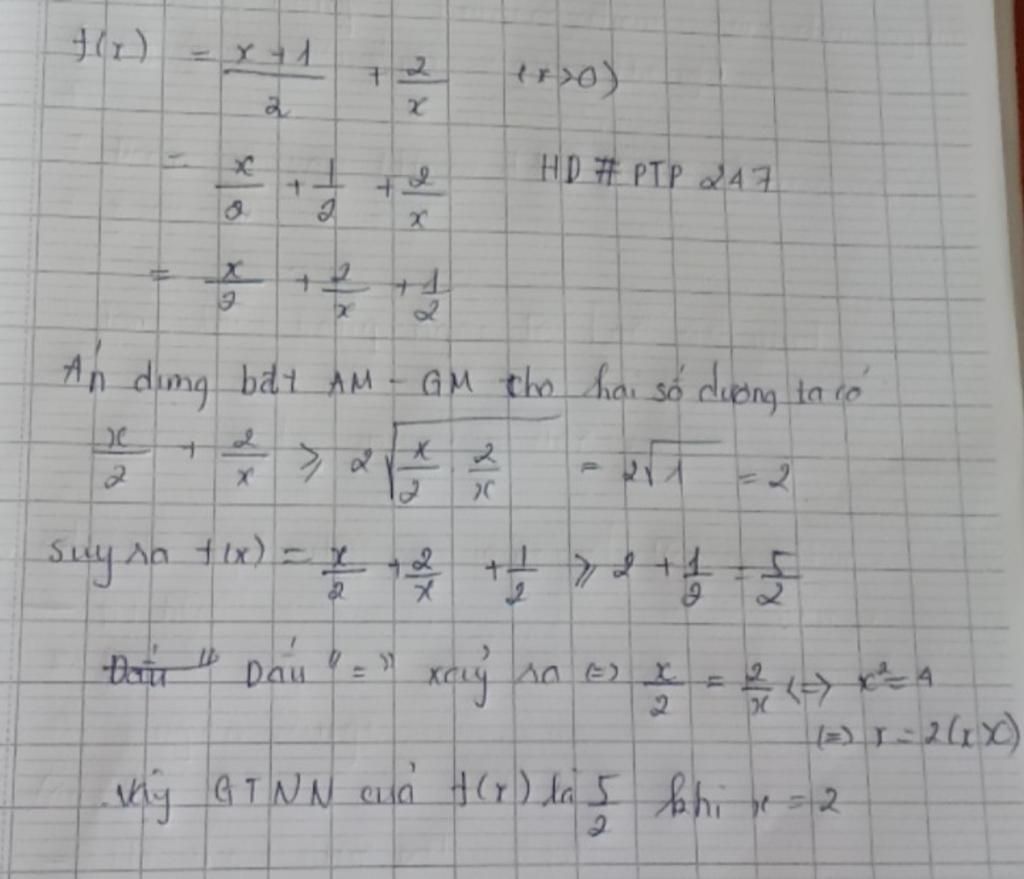 f(x) = \frac{x+1}{2} + \frac{2}{x} (x>0)
= \frac{x}{2} + \frac{1}{2} + \frac{2}{x} HD # PTP 247
= \frac{x}{2} + \frac{2}{x} + \frac{1}{2}
Áp dụng bđt AM - GM cho hai số dương ta có
\frac{x}{2} + \frac{2}{x} ⩾ 2\sqrt{\frac{x}{2} \frac{2}{x}} = 2\sqrt{1} = 2
Suy ra f(x) = \frac{x}{2} + \frac{2}{x} + \frac{1}{2} ⩾ 2 + \frac{1}{2} = \frac{5}{2}
Dấu "=" xảy ra <=> \frac{x}{2} = \frac{2}{x} <=> x² = 4
<=> x = 2
Vậy GTNN của f(x) là \frac{5}{2} khi x = 2